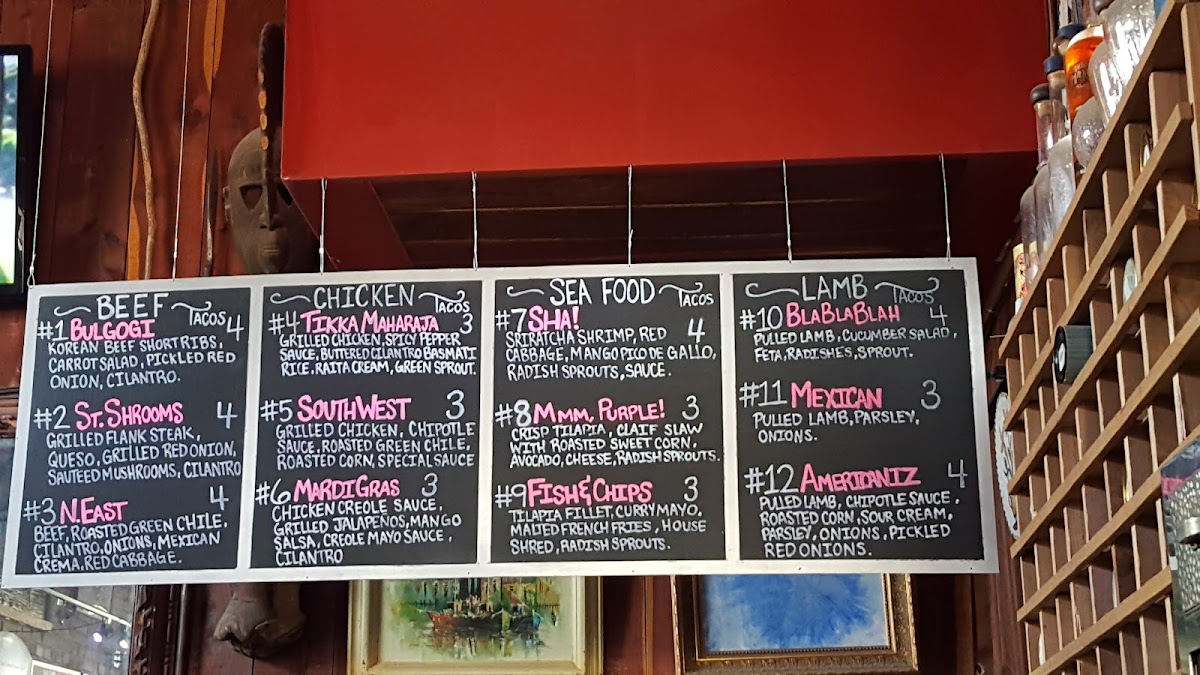 BEEF TACOS
#1 BULGOGI 4
KOREAN BEEF SHORT RIBS,
CARROT SALAD, PICKLED RED
ONION, CILANTRO.
#2 ST. SHROOMS 4
GRILLED FLANK STEAK,
QUESO, GRILLED RED ONION,
SAUTEED MUSHROOMS, CILANTRO
#3 N.EAST 4
BEEF, ROASTED GREEN CHILE,
CILANTRO, ONIONS, MEXICAN
CREMA, RED CABBAGE.
CHICKEN TACOS
#4 TIKKA MAHARAJA 3
GRILLED CHICKEN, SPICY PEPPER
SAUCE, BUTTERED CILANTRO BASMATI
RICE, RAITA CREAM, GREEN SPROUT.
#5 SOUTHWEST 3
GRILLED CHICKEN, CHIPOTLE
SAUCE, ROASTED GREEN CHILE,
ROASTED CORN, SPECIAL SAUCE
#6 MARDI GRAS 3
CHICKEN CREOLE SAUCE,
GRILLED JALAPEÑOS, MANGO
SALSA, CREOLE MAYO SAUCE,
CILANTRO
SEA FOOD TACOS
#7 SHA! 4
SRIRATCHA SHRIMP, RED
CABBAGE, MANGO PICO DE GALLO,
RADISH SPROUTS, SAUCE.
#8 MMM, PURPLE! 3
CRISP TILAPIA, CLAIF SLAW
WITH ROASTED SWEET CORN,
AVOCADO, CHEESE, RADISH SPROUTS.
#9 FISH & CHIPS 3
TILAPIA FILLET, CURRY MAYO,
MAITED FRENCH FRIES, HOUSE
SHRED, RADISH SPROUTS.
LAMB TACOS
#10 BLABLABLAH 4
PULLED LAMB, CUCUMBER SALAD,
FETA, RADISHE'S, SPROUT.
#11 MEXICAN 3
PULLED LAMB, PARSLEY,
ONIONS.
#12 AMERICANIZ 4
PULLED LAMB, CHIPOTLE SAUCE,
ROASTED CORN, SOUR CREAM,
PARSLY, ONIONS, PICKLED
RED ONIONS.